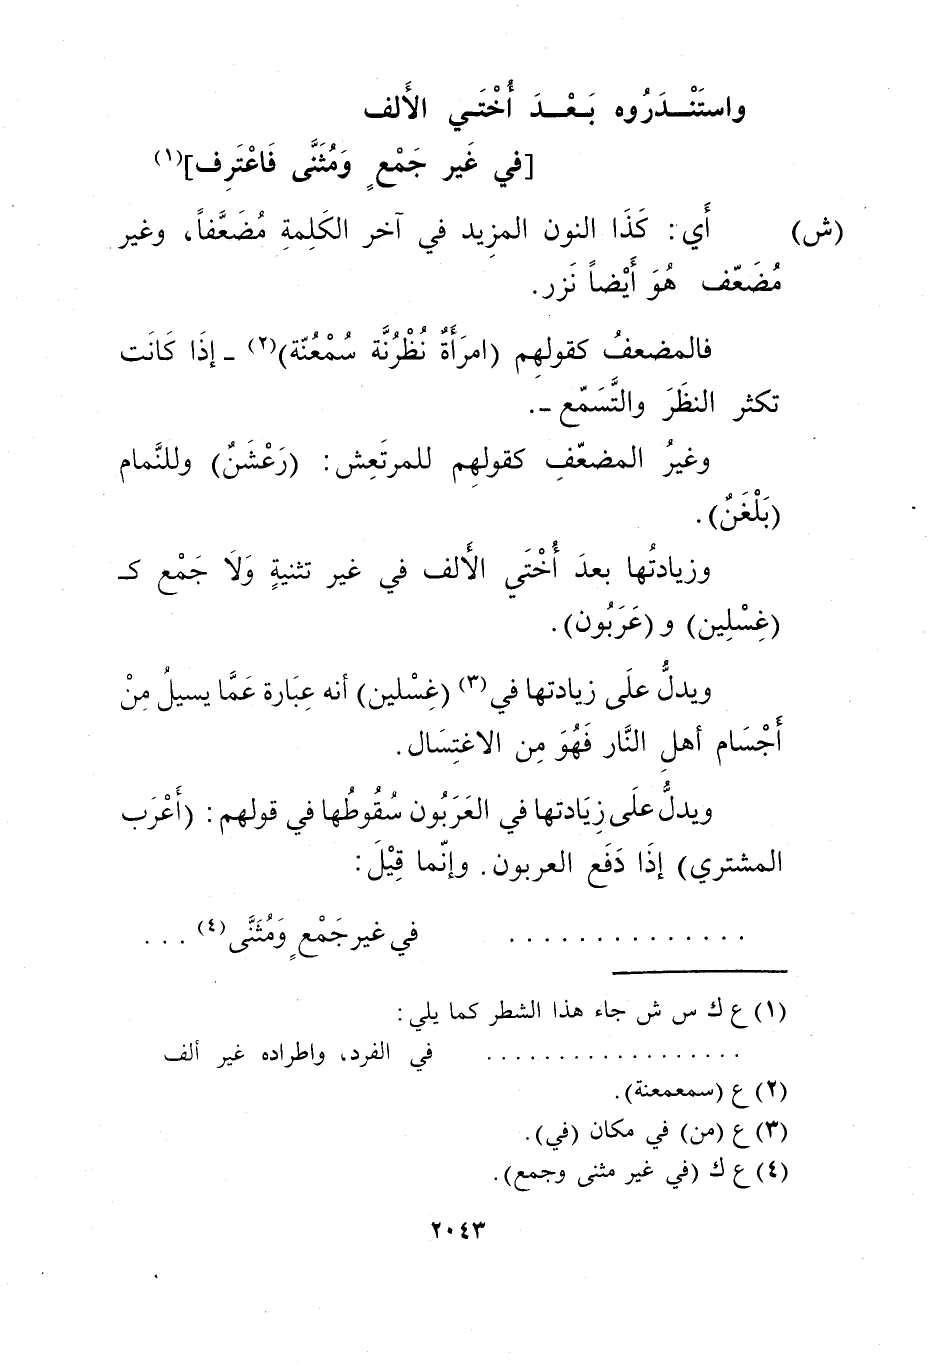 واستَنْـدَرُوه بَـعْـدَ أُخْتَـي الأَلف
[في غَير جَمْعٍ وَمُثَنَّى فَاعْتَرِف](١)
(ش) أَي: كَذَا النون المزِيد في آخر الكَلِمةِ مُضَعَّفاً، وغير
مُضَعّف هُوَ أَيْضاً نَزر.
فالمضعفُ كقولهِم (امرَأَةٌ نُظْرُنَّة سُمْعُنّة)(٢) ـ إذَا كَانَت
تكثر النظَرَ والتَّسَمّع ـ.
وغيرُ المضعّفِ كقولهِم للمرتَعِش: (رَعْشَنٌ) وللنَّمام
(بَلْغَنٌ).
وزيادتُها بعدَ أُخْتَي الأَلف في غير تثنيةٍ وَلَا جَمْع كـ
(غِسْلِين) و (عَرَبُون).
ويدلُّ علَى زيادتها في(٣) (غِسْلين) أنه عِبَارة عَمَّا يسيلُ مِنْ
أَجْسَام أهلِ النَّار فَهُوَ مِن الاغتِسَال.
ويدلُّ علَى زِيَادتها في العَرَبُون سُقُوطُها في قولهم: (أَعْرَب
المشتري) إذَا دَفَع العربون. وإنّما قِيْلَ:
.............. في غير جَمْعٍ وَمُثَنَّى(٤) ...
(١) ع ك س ش جاء هذا الشطر كما يلي:
.................. في الفرد، واطراده غير ألف
(٢) ع (سمعمعنة).
(٣) ع (من) في مكان (في).
(٤) ع ك (في غير مثنى وجمع).
٢٠٤٣